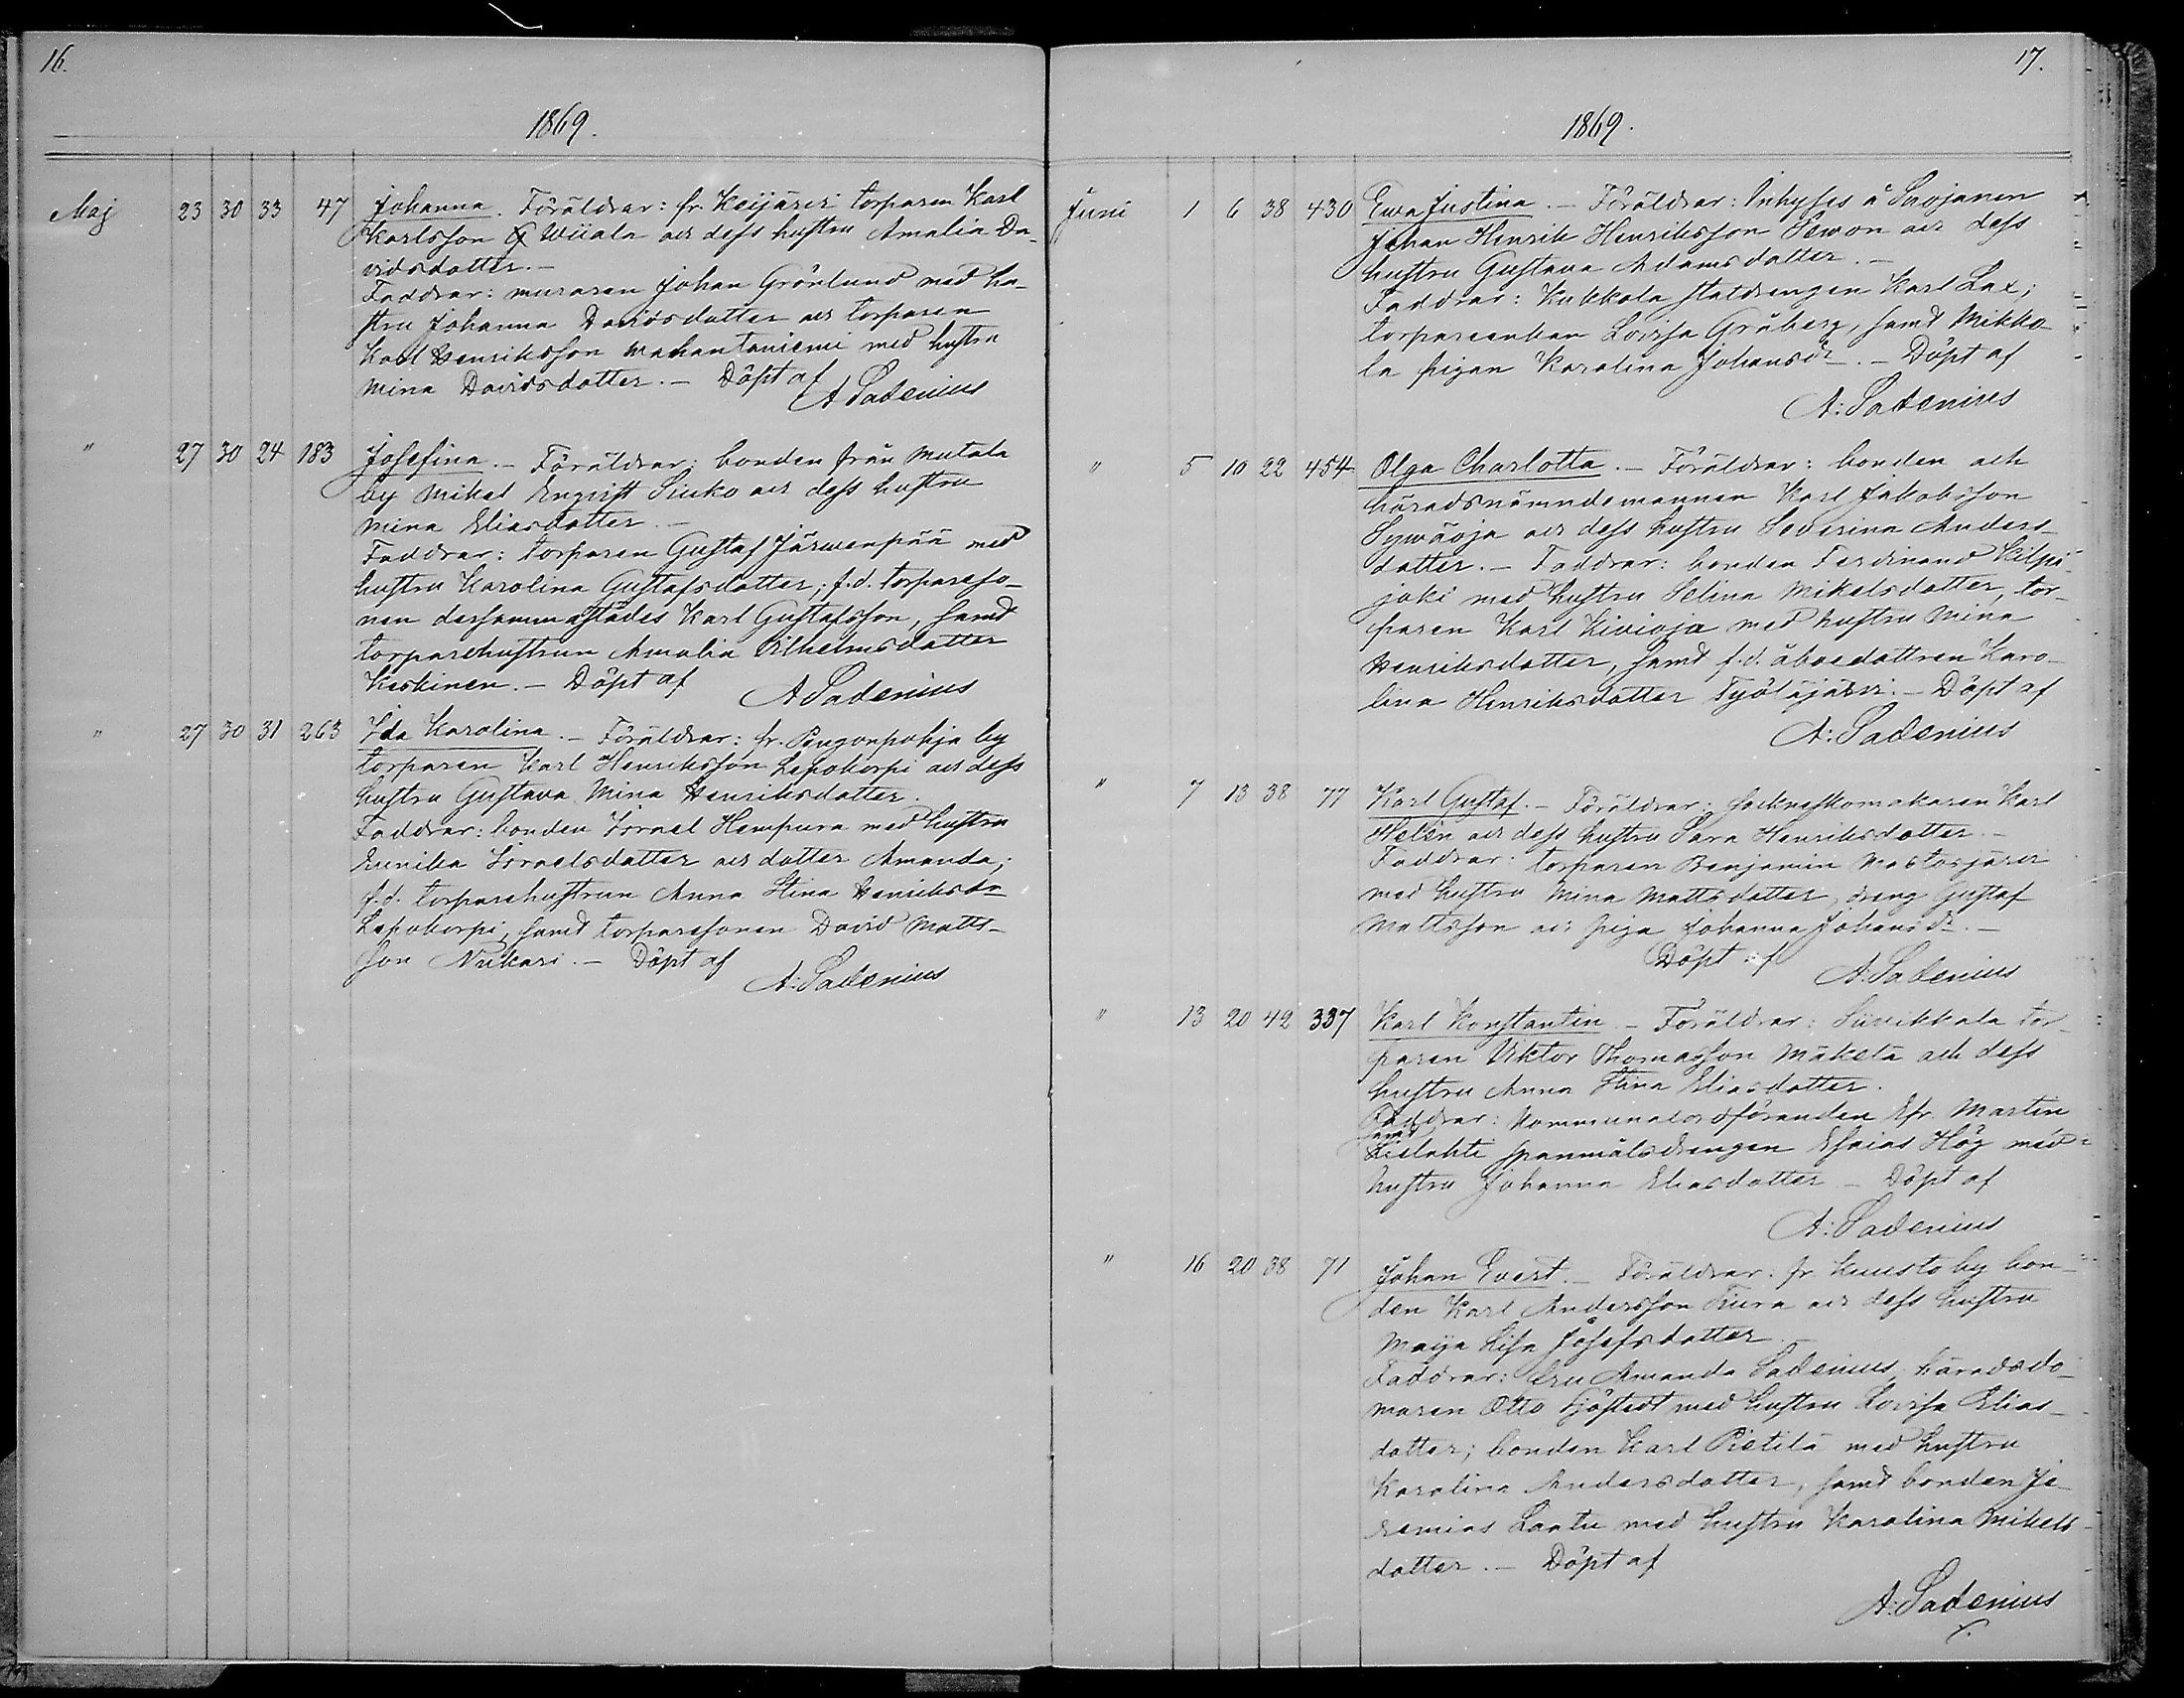 16.
1869.
Maj 23 30 33 47 Johanna. Föräldrar: fr. Keijäris torparen Karl
Karlsson Wiiala och dess hustru Amalia Da-
vidsdotter.-
Faddrar: muraren Johan Grönlund med hu-
stru Johanna Davidsdotter och torparen
Karl Henriksson Mahantaniemi med hustru
Mina Davidsdotter.- Döpt af
A Sadenius
" 27 30 24 183 Josefina.- Föräldrar: bonden från Mutala
by Mikel Engrist Siuko och dess hustru
Mina Eliasdotter.-
Faddrar: torparen Gustaf Järwenpää med
hustru Karolina Gustafsdotter; f.d. torpareso-
nen dersammastädes Karl Gustafsson, samt
torparehustrun Amalia Wilhelmsdotter
Keskinen.- Döpt af
A Sadenius
" 27 30 31 263 Ida Karolina.- Föräldrar: fr. Pengonpohja by
torparen Karl Henriksson Lepokorpi och dess
hustru Gustava Mina Henriksdotter.
Faddrar: bonden Israel Hempura med hustru
Eunika Israelsdotter och dotter Amanda;
f.d. torparehustrun Anna Stina Henriksdr
Lepokorpi, samt torparesonen David Matts-
son Niukari.- Döpt af
A: Sadenius
17.
1869.
Juni 1 6 38 430 Ewa Justina.- Föräldrar: Inhyses å
Johan Henrik Henriksson Sewon och dess
hustru Gustava Adamsdotter.-
Faddrar: Kukkola statdrengen Karl Lax;
torpareenkan Lovisa Gråberg, samt Mikko-
la pigan Karolina Johansdr.- Döpt af
A: Sadenius
" 5 10 22 454 Olga Charlotta.- Föräldrar: bonden och
häradsnämndemannen Karl Jakobsson
Sywäoja och dess hustru Severina Anders-
dotter.- Faddrar: bonden Ferdinand Kilpi-
joki med hustru Selina Mikelsdotter, tor-
paren Karl Kivioja med hustru Mina
Henriksdotter, samt f.d. åboedottren Karo-
lina Henriksdotter Työläjärvi.- Döpt af
A: Sadenius
" 7 13 38 77 Karl Gustaf.- Föräldrar: sockneskomakaren Karl
Helén och dess hustru Sara Henriksdotter.-
Faddrar: torparen Benjamin Mastosjärvi
med hustru Mina Mattsdotter, dreng Gustaf
Mattsson och piga Johanna Johansdr.-
Döpt af
A. Sadenius
" 13 20 42 337 Karl Konstantin.- Föräldrar: Siivikkala tor-
paren Viktor Thomasson Mäkelä och dess
hustru Anna Stina Eliasdotter.
Faddrar: Kommunalordföranden Efr. Martin
samt
Lielahti spanmålsdrengen Esaias Hög med
hustru Johanna Eliasdotter.- Döpt af
A: Sadenius
" 16 20 38 71 Johan Evert.- Föräldrar: fr. Kuusto by bon-
den Karl Andersson Tiura och dess hustru
Maija Lisa Josefsdotter.-
Faddrar: fru Amanda Sadenius, häradsdo-
maren Otto Sjöstedt med hustru Lovisa Elias-
dotter; bonden Karl Pietilä med hustru
Karolina Andersdotter, samt bonden Je-
remias Laatu med hustru Karolina Mikels-
dotter.- Döpt af
A: Sadenius